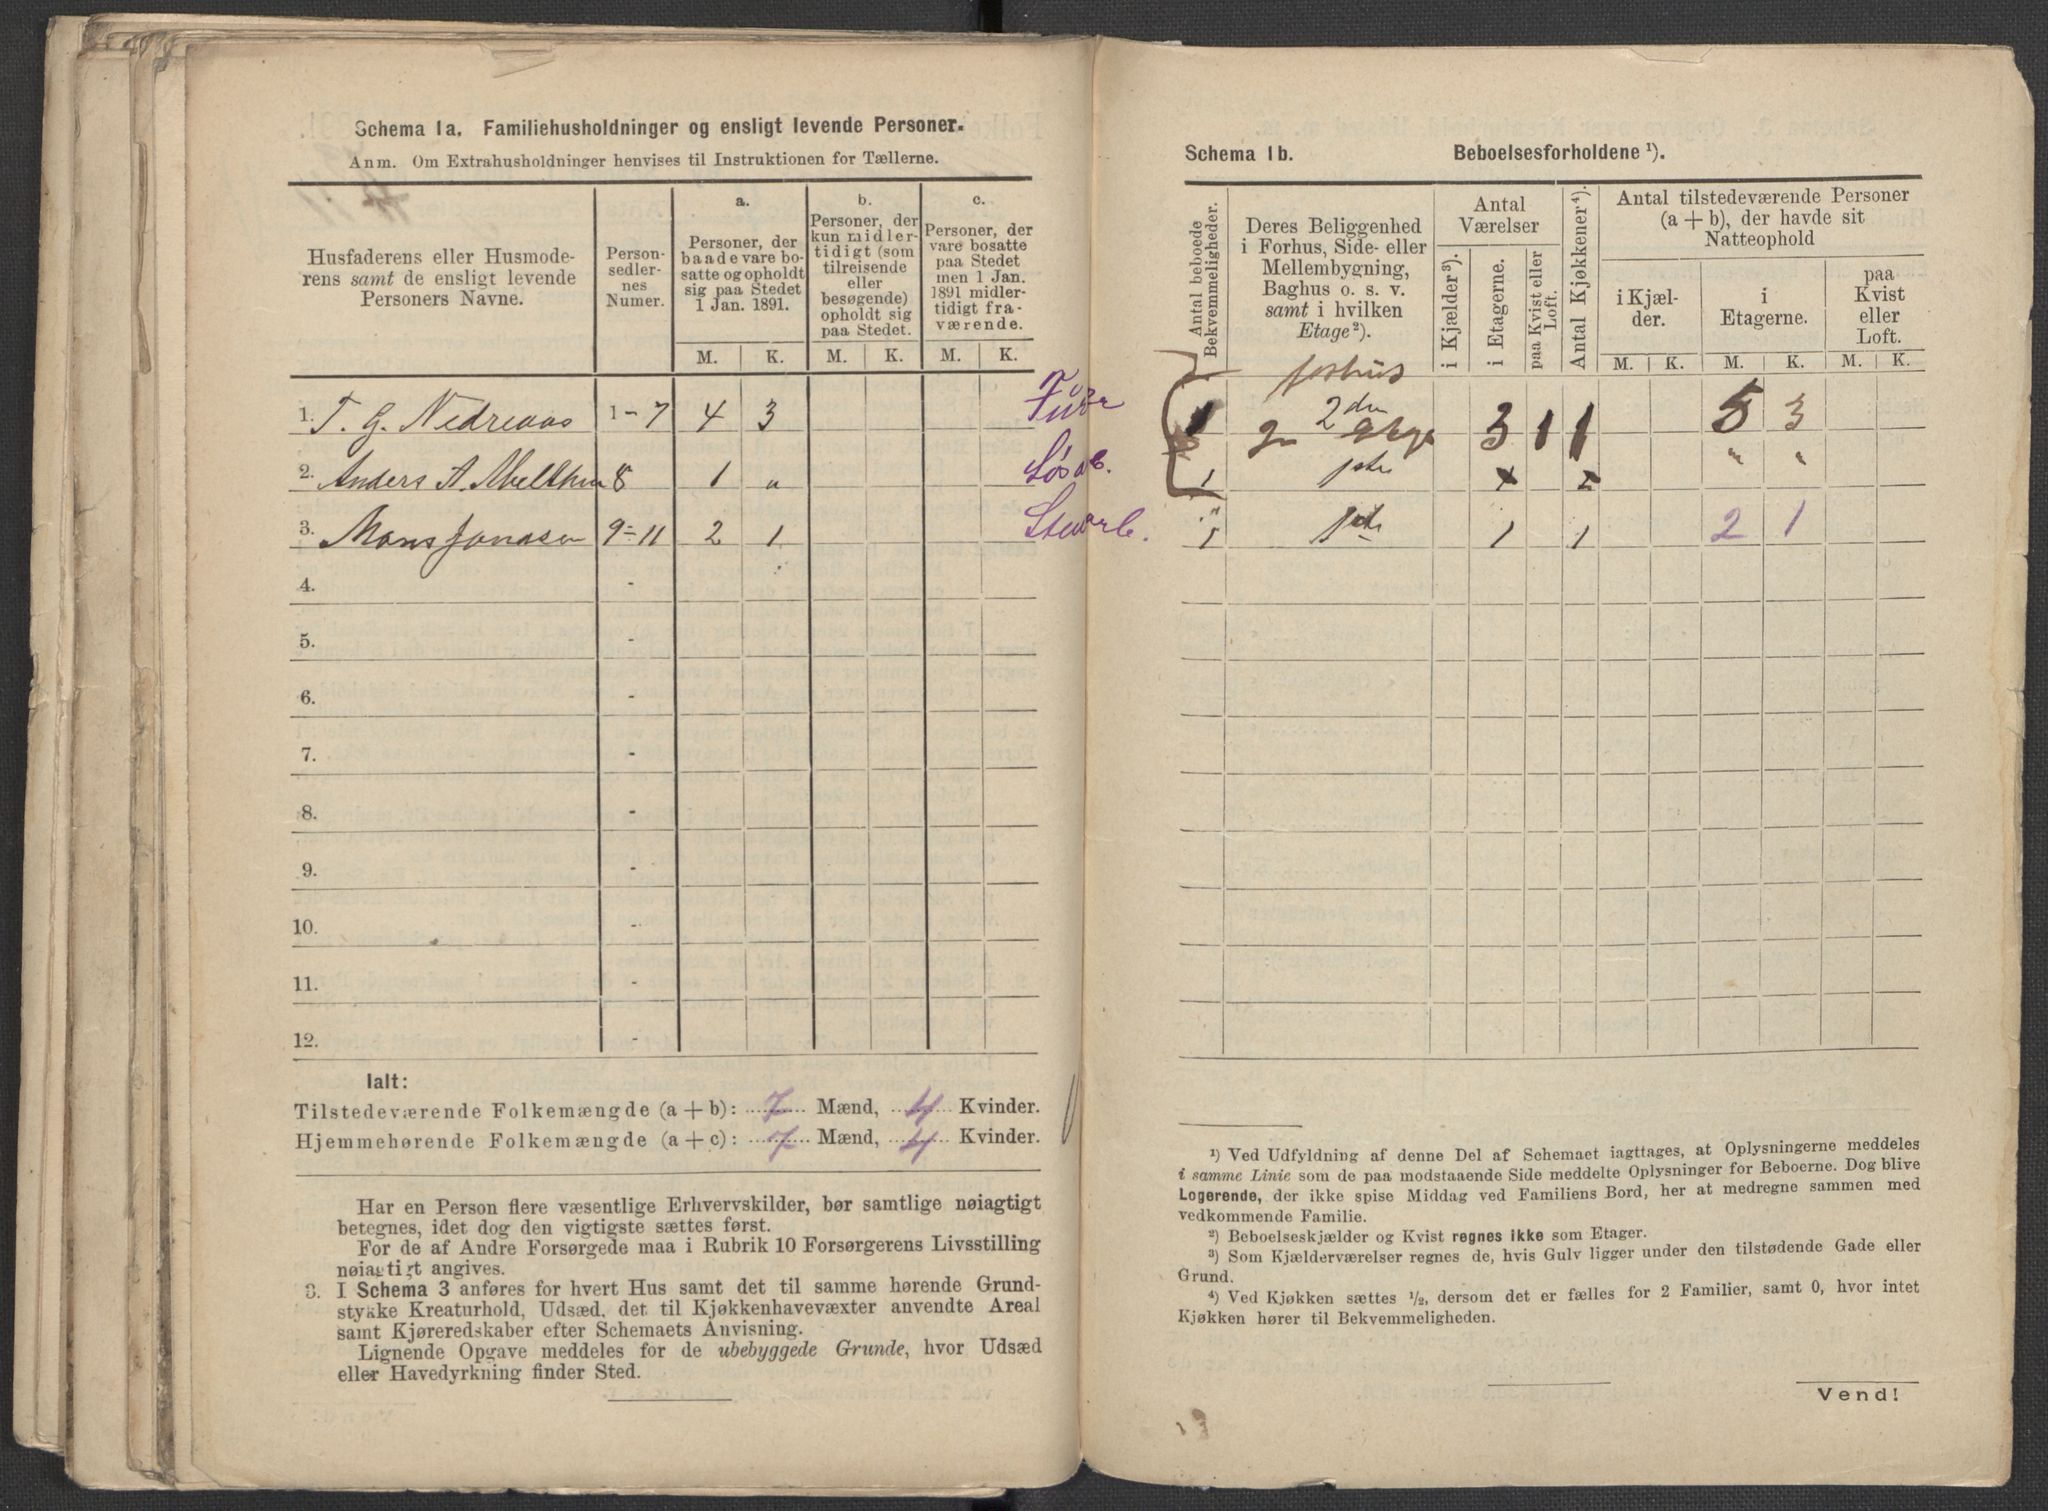 Schema 1a. Familiehusholdninger og ensligt levende Personer.
Anm. Om Extrahusholdninger henvises til Instruktionen for Tællerne.
Husfaderens eller Husmoderens samt de ensligt levende Personers Navne.
Personsedlernes Numer.
a.
Personer, der baade vare bosatte og opholdt sig paa Stedet 1 Jan. 1891.
b.
Personer, der kun midlertidigt (som tilreisende eller besøgende) opholdt sig paa Stedet.
c.
Personer, der vare bosatte paa Stedet men 1 Jan. 1891 midlertidigt fraværende.
M. K. M. K. M. K.
1. T. G. Nedreaas 1-7 4 3
2. Anders A. 8 1 "
3. Mons Jonasen 9-11 2 1
4. -
5. -
6. -
7. -
8. -
9. -
10. -
11. -
12. -
Ialt:
Tilstedeværende Folkemængde (a + b): 7 Mænd, 4 Kvinder.
Hjemmehørende Folkemængde (a + c): 7 Mænd, 4 Kvinder.
Har en Person flere væsentlige Erhvervskilder, bør samtlige nøiagtigt
betegnes, idet dog den vigtigste sættes først.
For de af Andre Forsørgede maa i Rubrik 10 Forsørgerens Livsstilling
nøiagtigt angives.
3. I Schema 3 anføres for hvert Hus samt det til samme hørende Grund-
stykke Kreaturhold, Udsæd, det til Kjøkkenhavevæxter anvendte Areal
samt Kjøreredskaber efter Schemaets Anvisning.
Lignende Opgave meddeles for de ubebyggede Grunde, hvor Udsæd
eller Havedyrkning finder Sted.
Schema 1b. Beboelsesforholdene ¹).
Antal beboede Bekvemmeligheder.
Deres Beliggenhed i Forhus, Side- eller Mellembygning, Baghus o. s. v. samt i hvilken Etage²).
Antal Værelser
i Kjælder³).
i Etagerne.
paa Kvist eller Loft.
Antal Kjøkkener⁴).
Antal tilstedeværende Personer (a + b), der havde sit Natteophold
i Kjælder.
i Etagerne.
paa Kvist eller Loft.
M. K. M. K. M. K.
forhus
1 2den 3 1 1 5 3
1 " "
1 1 1 2 1
¹) Ved Udfyldning af denne Del af Schemaet iagttages, at Oplysningerne meddeles
i samme Linie som de paa modstaaende Side meddelte Oplysninger for Beboerne. Dog blive
Logerende, der ikke spise Middag ved Familiens Bord, her at medregne sammen med
vedkommende Familie.
²) Beboelseskjælder og Kvist regnes ikke som Etager.
³) Som Kjælderværelser regnes de, hvis Gulv ligger under den tilstødende Gade eller
Grund.
⁴) Ved Kjøkken sættes ½, dersom det er fælles for 2 Familier, samt 0, hvor intet
Kjøkken hører til Bekvemmeligheden.
Vend!